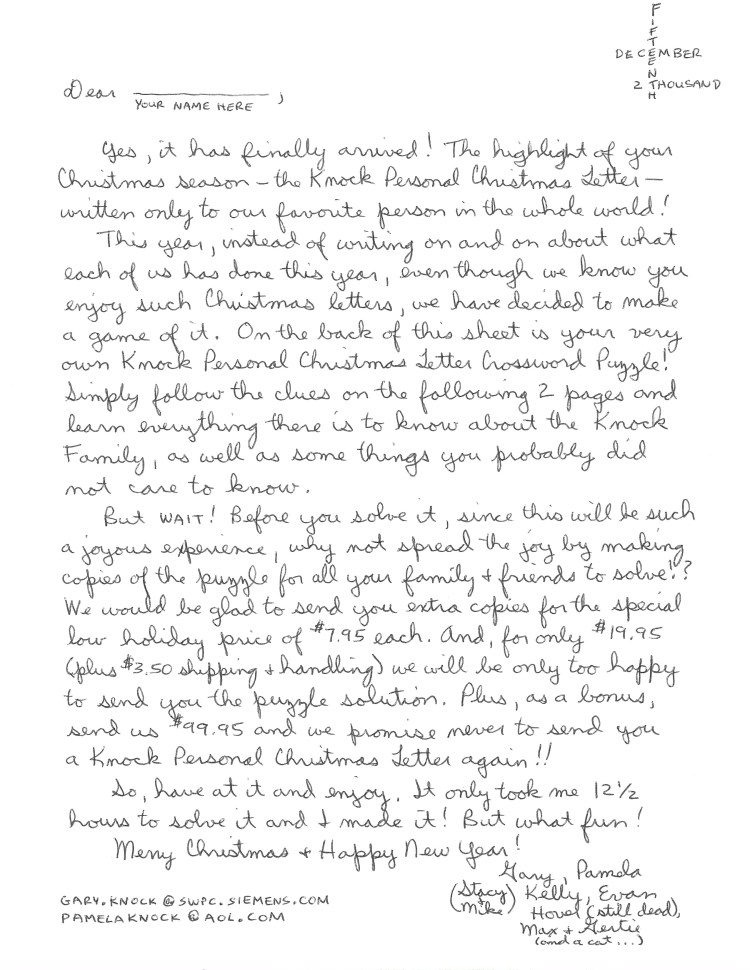 FIFTEENTH
DECEMBER
2 THOUSAND
Dear ____________,
YOUR NAME HERE
Yes, it has finally arrived! The highlight of your
Christmas season – the Knock Personal Christmas Letter –
written only to our favorite person in the whole world!
This year, instead of writing on and on about what
each of us has done this year, even though we know you
enjoy such Christmas letters, we have decided to make
a game of it. On the back of this sheet is your very
own Knock Personal Christmas Letter Crossword Puzzle!
Simply follow the clues on the following 2 pages and
learn everything there is to know about the Knock
Family, as well as some things you probably did
not care to know.
But WAIT! Before you solve it, since this will be such
a joyous experience, why not spread the joy by making
copies of the puzzle for all your family + friends to solve!?
We would be glad to send you extra copies for the special
low holiday price of $7.95 each. And, for only $19.95
(plus $3.50 shipping + handling) we will be only too happy
to send you the puzzle solution. Plus, as a bonus,
send us $99.95 and we promise never to send you
a Knock Personal Christmas Letter again!!
So, have at it and enjoy. It only took me 12½
hours to solve it and I made it! But what fun!
Merry Christmas + Happy New Year!
Gary, Pamela
(Stacy) Kelly, Evan
(Mike) Hovel (still dead),
Max + Gertie
(and a cat...)
GARY.KNOCK@SWPC.SIEMENS.COM
PAMELAKNOCK@AOL.COM